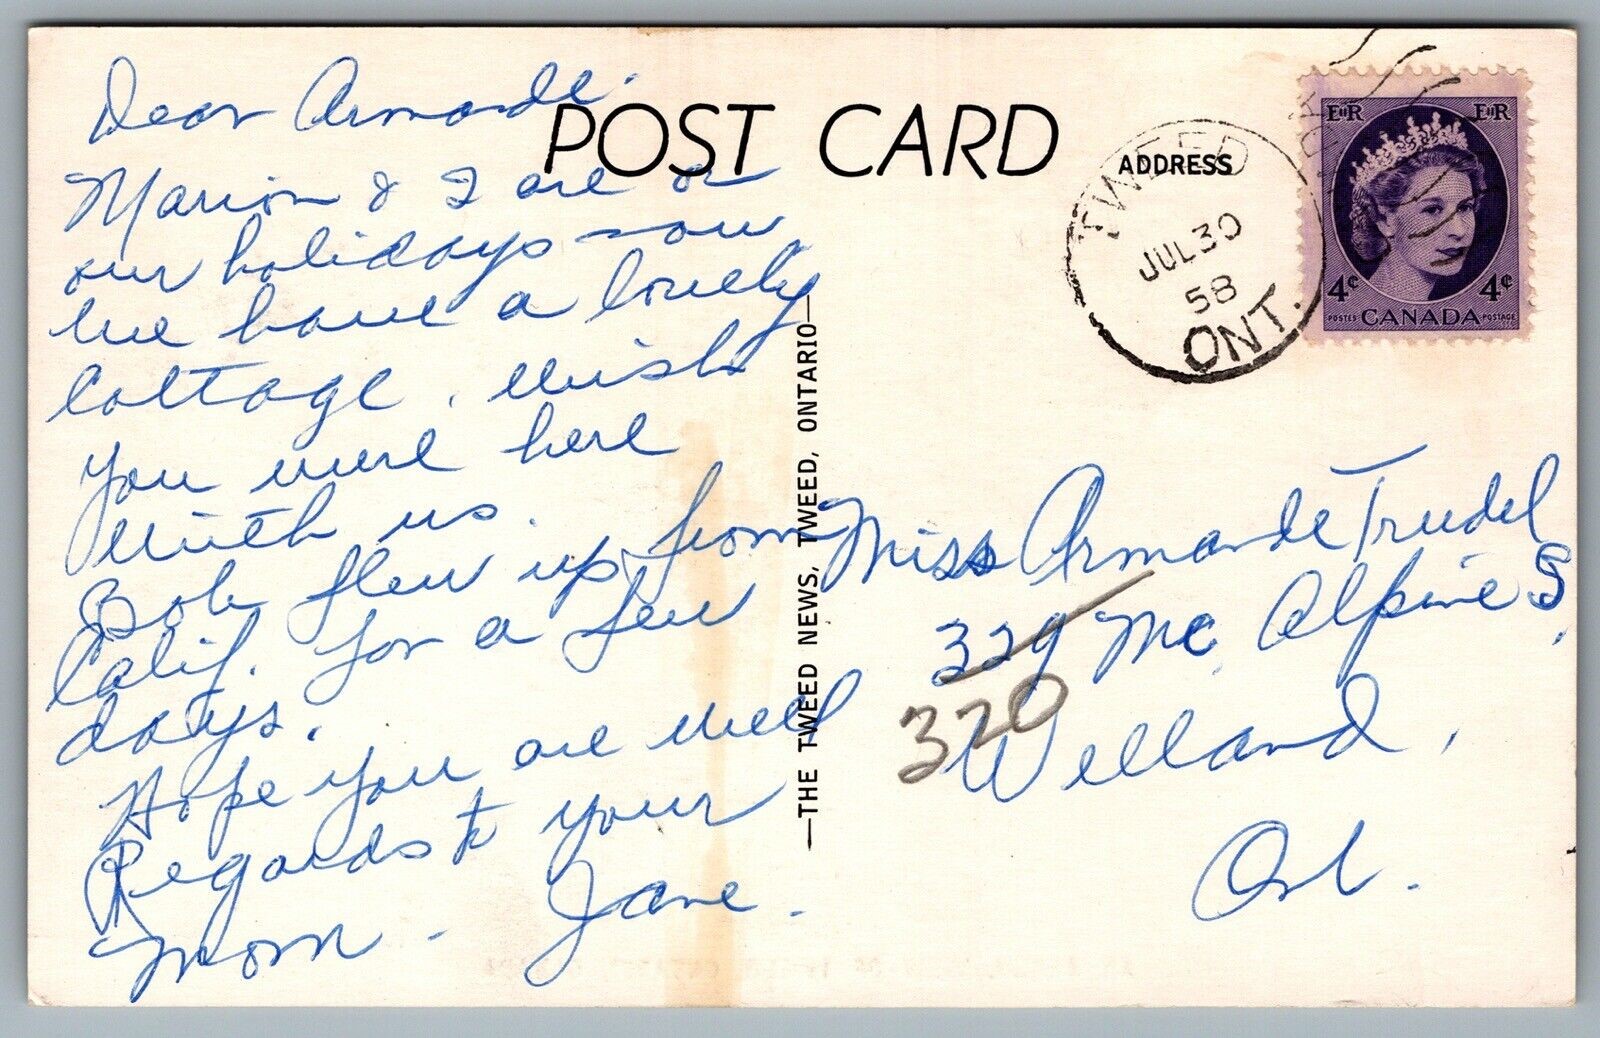 Dear Armande.
Marion & I are on
our holidays now
We have a lovely
Cottage. Wish
you were here
with us.
Bob flew up from
Calif. for a few
days.
Hope you are well
Regards to your
Mom. Jane.
POST CARD
ADDRESS
—THE TWEED NEWS, TWEED, ONTARIO—
TWEED
JUL 30
58
ONT.
EIIR EIIR
4¢ 4¢
POSTES CANADA POSTAGE
Miss Armande Trudel
329 Mc Alpine S,
320
Welland,
Ont.